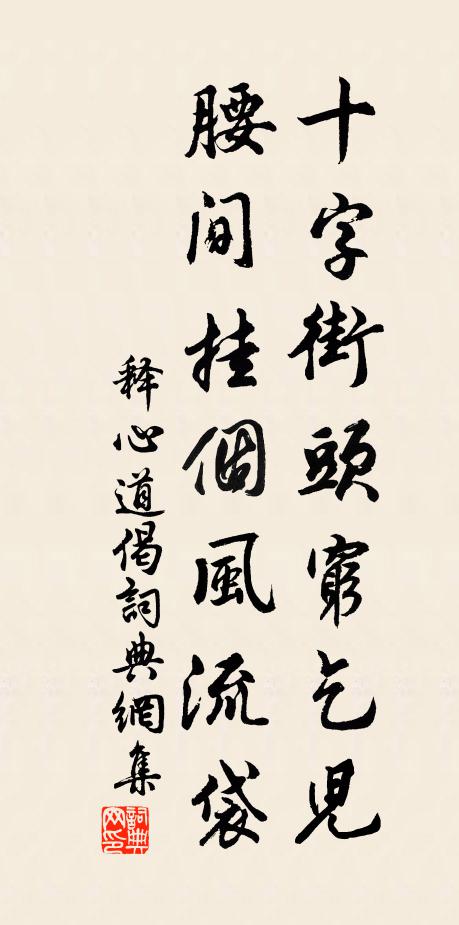 十字街頭窮乞兒
腰间挂個風流袋
释心道偈詞典網集
詞典网印